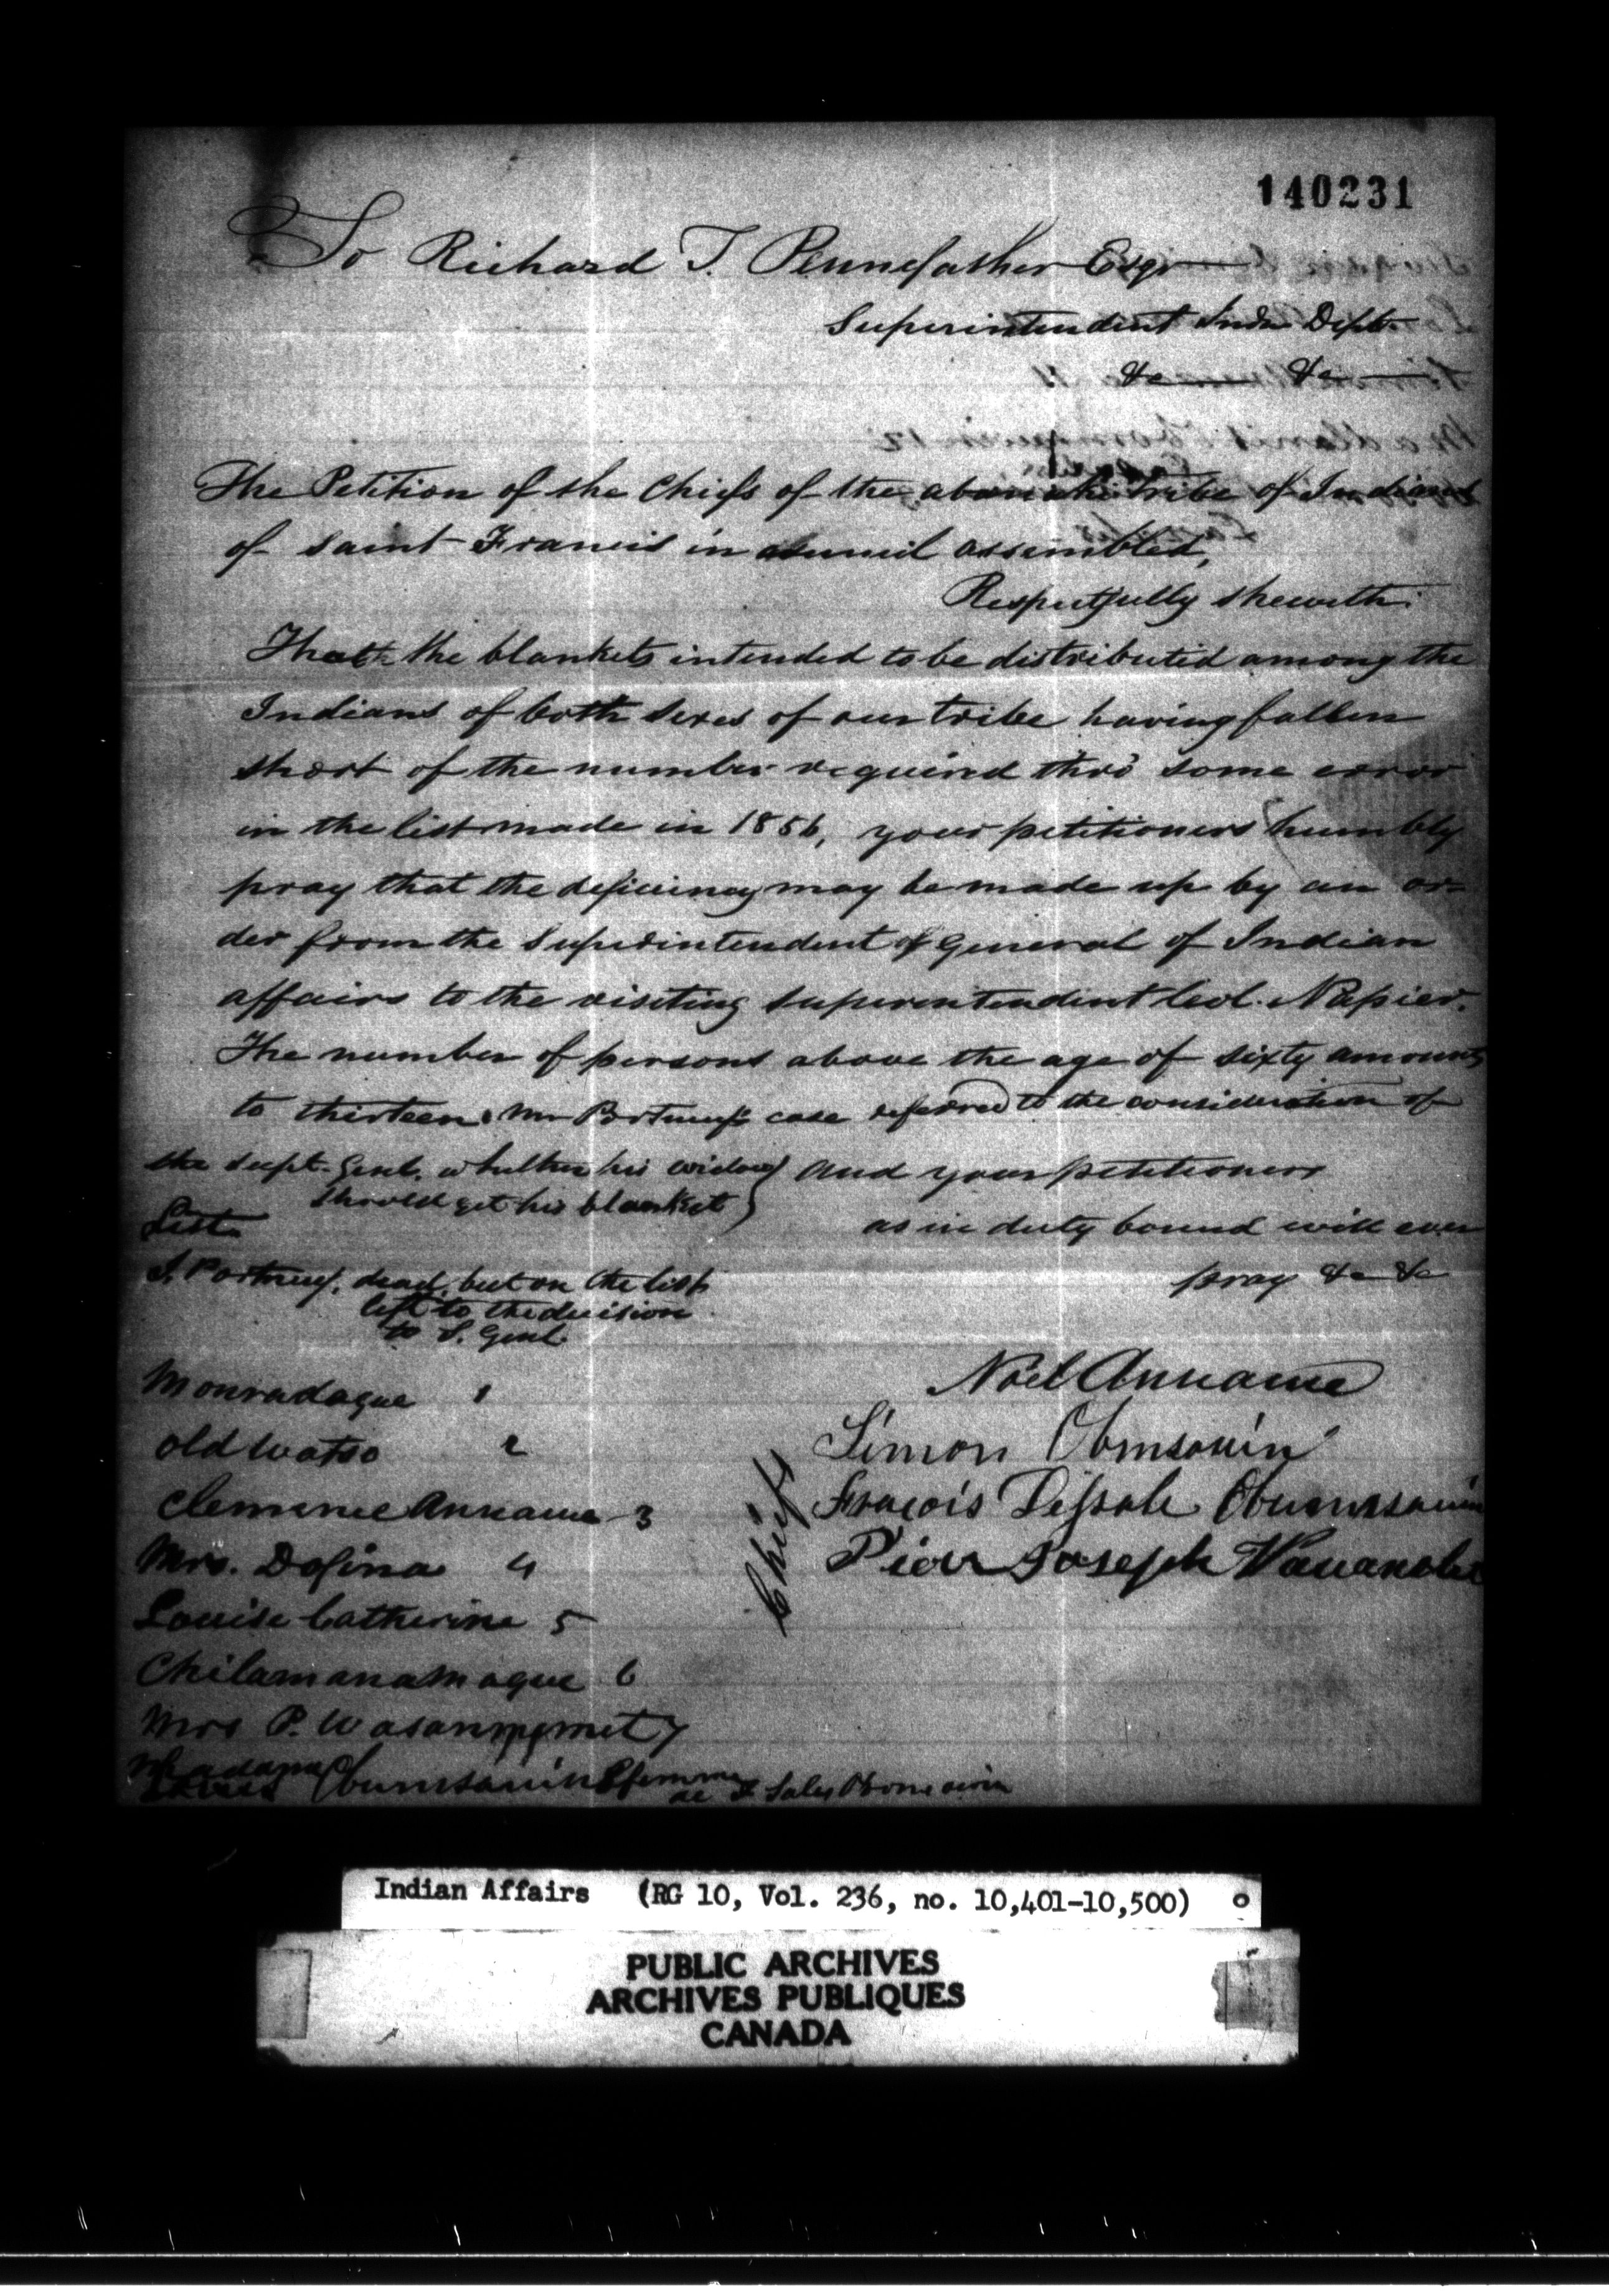 140231
To Richard T. Pennefather Esqr
Superintendent Indn Dept.
&c &c
The Petition of the Chiefs of the abenakis tribe of Indians
of Saint Francis in council assembled,
Respectfully sheweth:
That the blankets intended to be distributed among the
Indians of both sexes of our tribe having fallen
short of the number required thro' some error
in the list made in 1856, your petitioners humbly
pray that the deficiency may be made up by an or-
der from the Superintendent General of Indian
affairs to the visiting superintendent Col. Napier.
The number of persons above the age of sixty amounts
to thirteen. Mr Portneuf's case referred to the consideration of
the supt. Genl. whether his widow
should get his blanket
and your petitioners
as in duty bound will ever
pray &c &c
List
I. Portneuf, dead, but on the list
left to the decision
to S. Genl.
Monradague 1
old Watso 2
Clemence Annance 3
Mrs. Dofina 4
Louise Catherine 5
Chilamanamaque 6
Mrs P. Wasanmemet 7
Madame Obumsauin femme
de F. Sales Obomsawin
Chiefs
Noël Annance
Simon Obmsauin
Fraçois Dessale Obummsauin
Pier Joseph
Indian Affairs (RG 10, Vol. 236, no. 10,401-10,500) o
PUBLIC ARCHIVES
ARCHIVES PUBLIQUES
CANADA